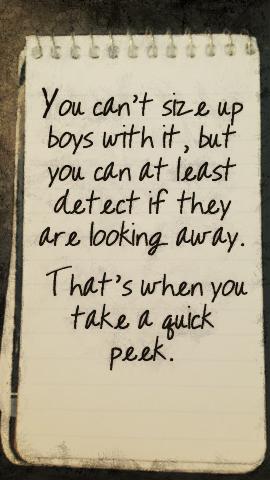 You can't size up
boys with it, but
you can at least
detect if they
are looking away.
That's when you
take a quick
peek.